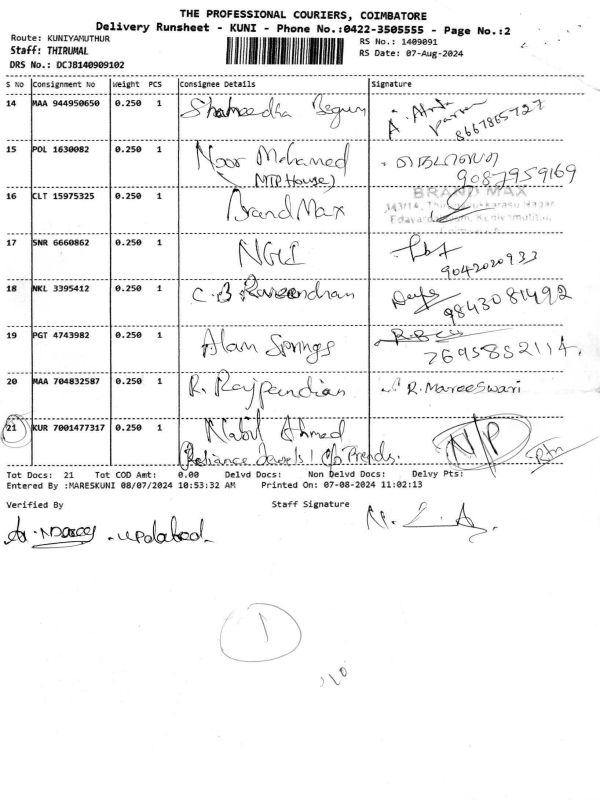 THE PROFESSIONAL COURIERS, COIMBATORE
Delivery Runsheet - KUNI - Phone No.:0422-3505555 - Page No.:2
Route: KUNIYAMUTHUR
RS No.: 1409091
Staff: THIRUMAL
RS Date: 07-Aug-2024
DRS No.: DCJB140909102
S No Consignment No Weight PCS Consignee Details Signature
14 MAA 944950650 0.250 1 Shaheedha Begum
8667865727
15 POL 1630082 0.250 1 Noor Mohamed
(MTP House) 9087959169
16 CLT 15975325 0.250 1 Brand Max BRAND MAX
17 SNR 6660862 0.250 1
9042020933
18 NKL 3395412 0.250 1 C. B. Raveendran
9843081492
19 PGT 4743982 0.250 1 Alam Springs
7695852114.
20 MAA 704832587 0.250 1 R. Rajpandian R. Mareeswari
21 KUR 7001477317 0.250 1 Nabil Ahmed N/P
Reliance Jewels / O/p Trends.
Tot Docs: 21 Tot COD Amt: 0.00 Delvd Docs: Non Delvd Docs: Delvy Pts:
Entered By :MARESKUNI 08/07/2024 10:53:32 AM Printed On: 07-08-2024 11:02:13
Verified By Staff Signature
updated
1